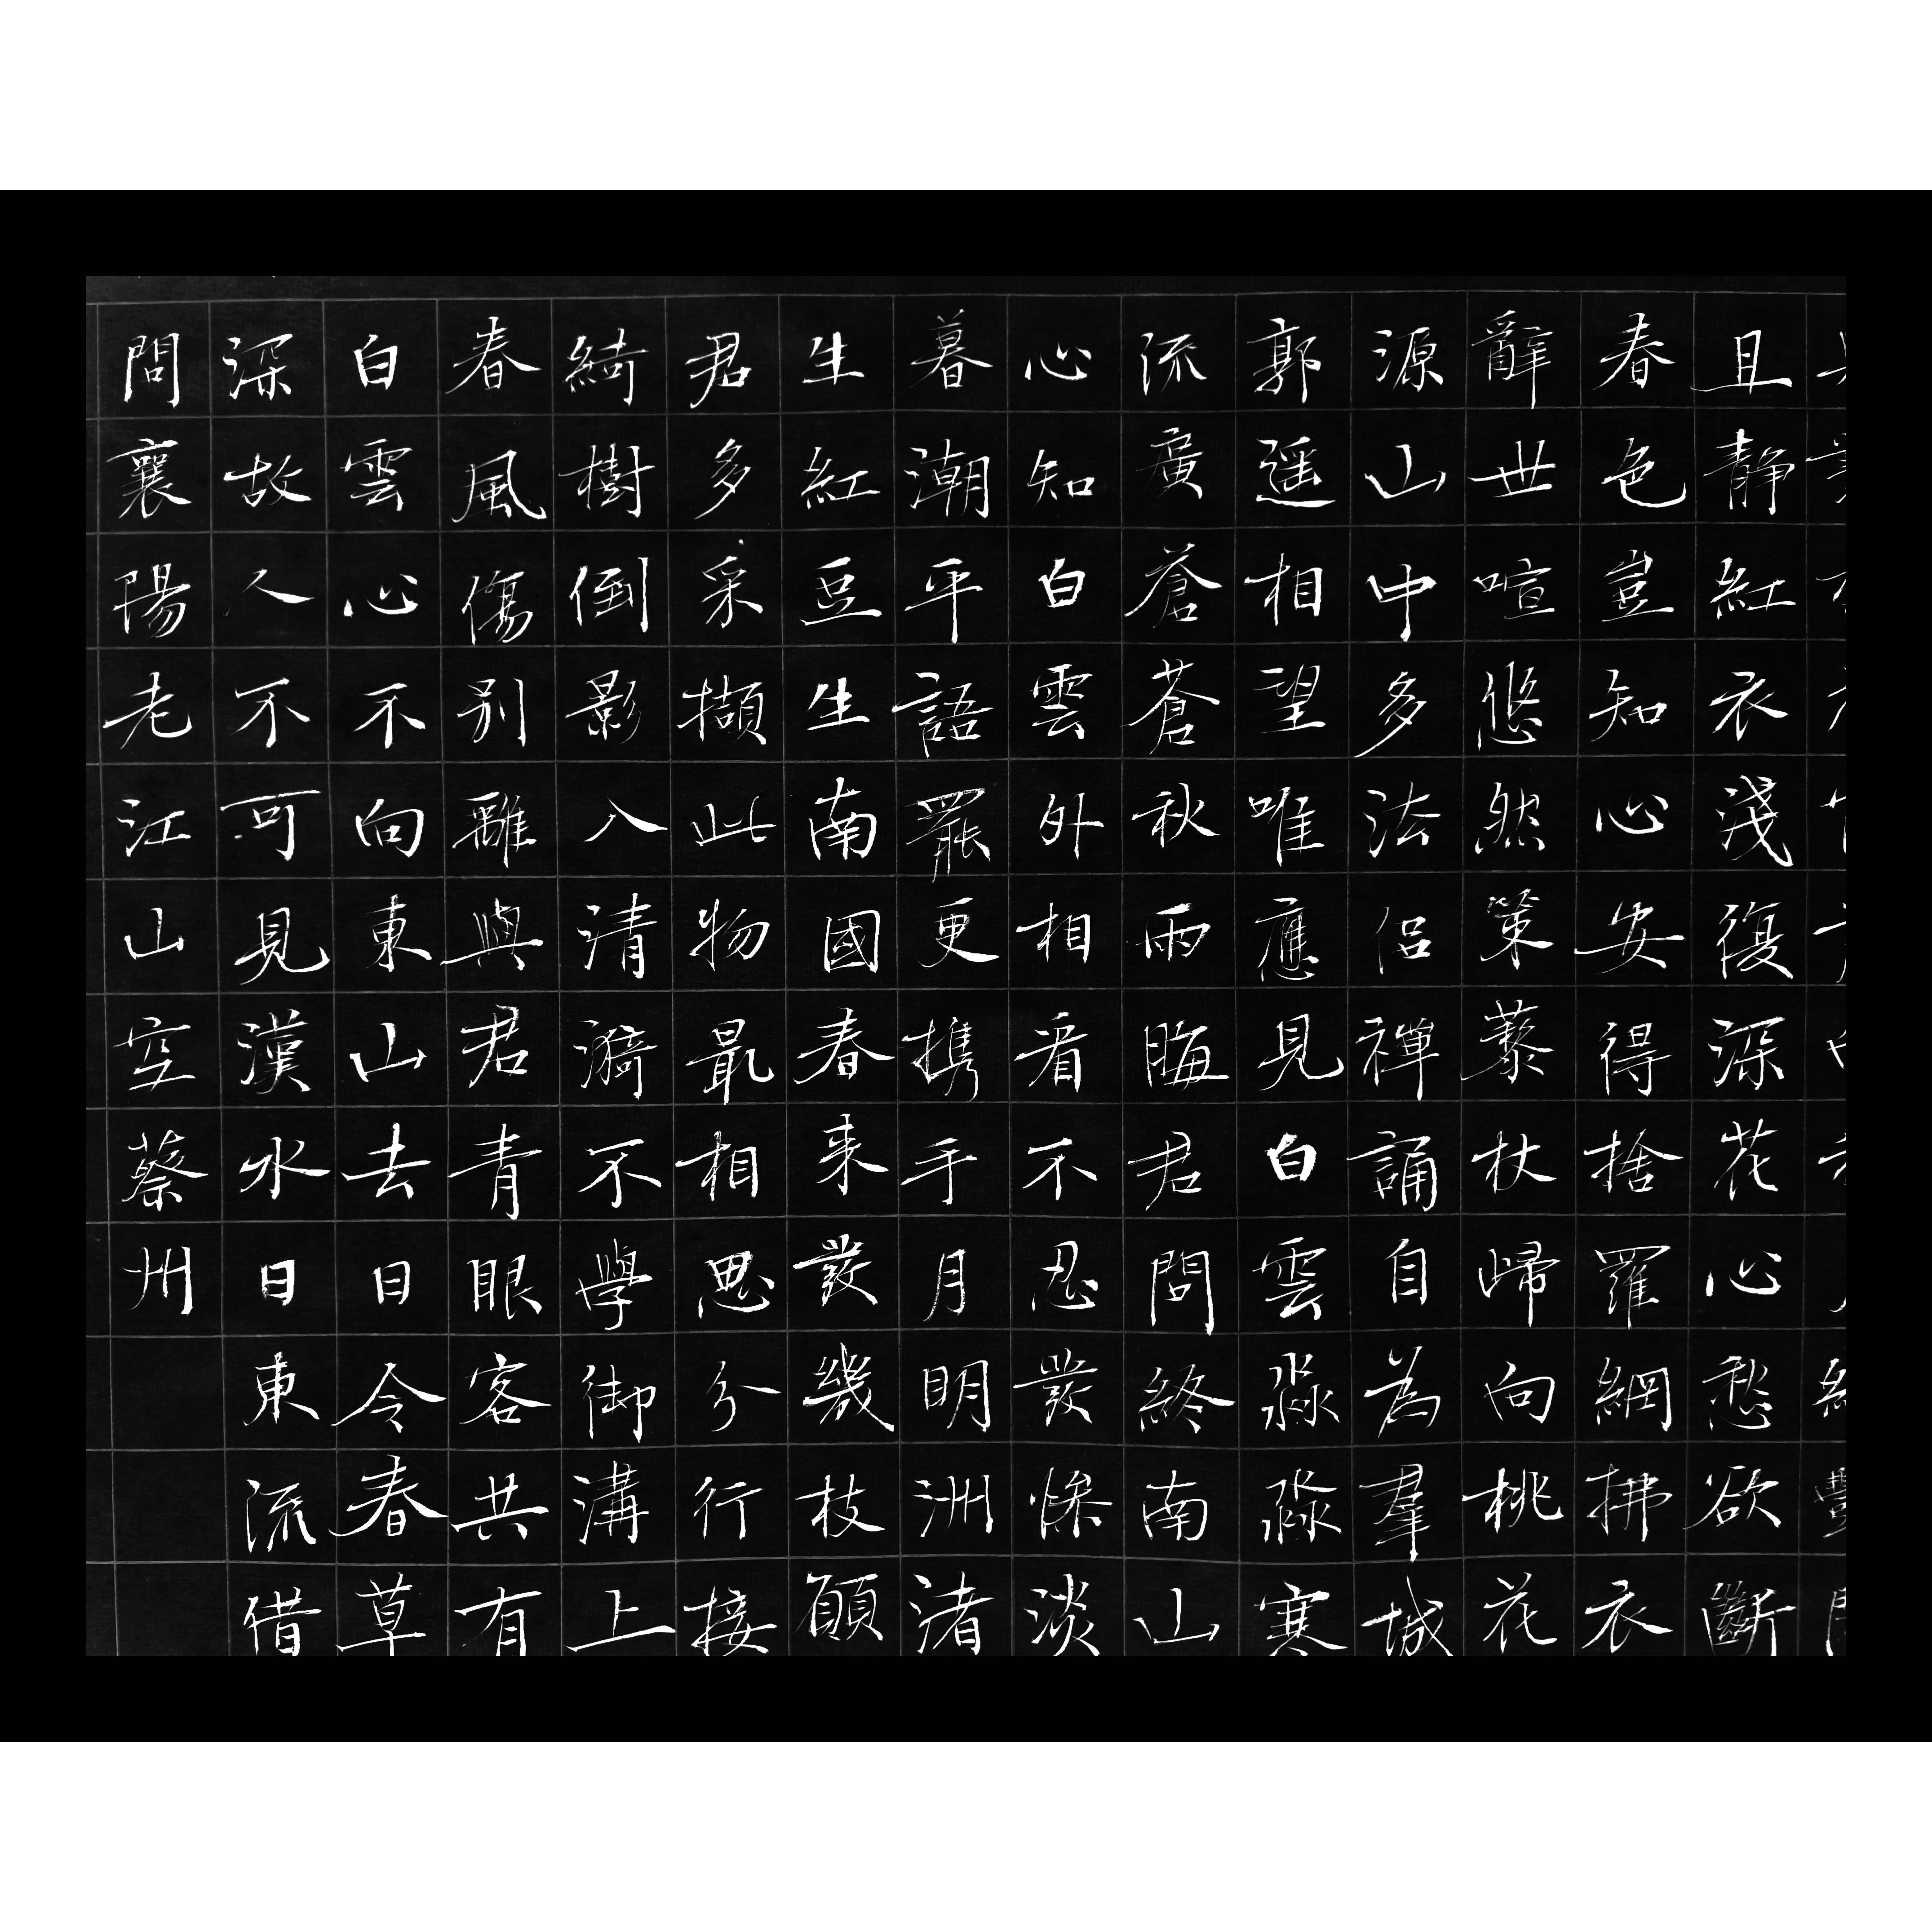 且靜紅衣淺復深花心愁欲斷
春色豈知心安得捨羅網拂衣
辭世喧悠然策藜杖歸向桃花
源山中多法侶禪誦自為羣城
郭遥相望唯應見白雲淼淼寒
流廣蒼蒼秋雨晦君問終南山
心知白雲外相看不忍發慘淡
暮潮平語罷更携手月明洲渚
生紅豆生南國春来發幾枝願
君多采擷此物最相思分行接
綺樹倒影入清漪不學御溝上
春風傷別離與君青眼客共有
白雲心不向東山去日令春草
深故人不可見漢水日東流借
問襄陽老江山空蔡州